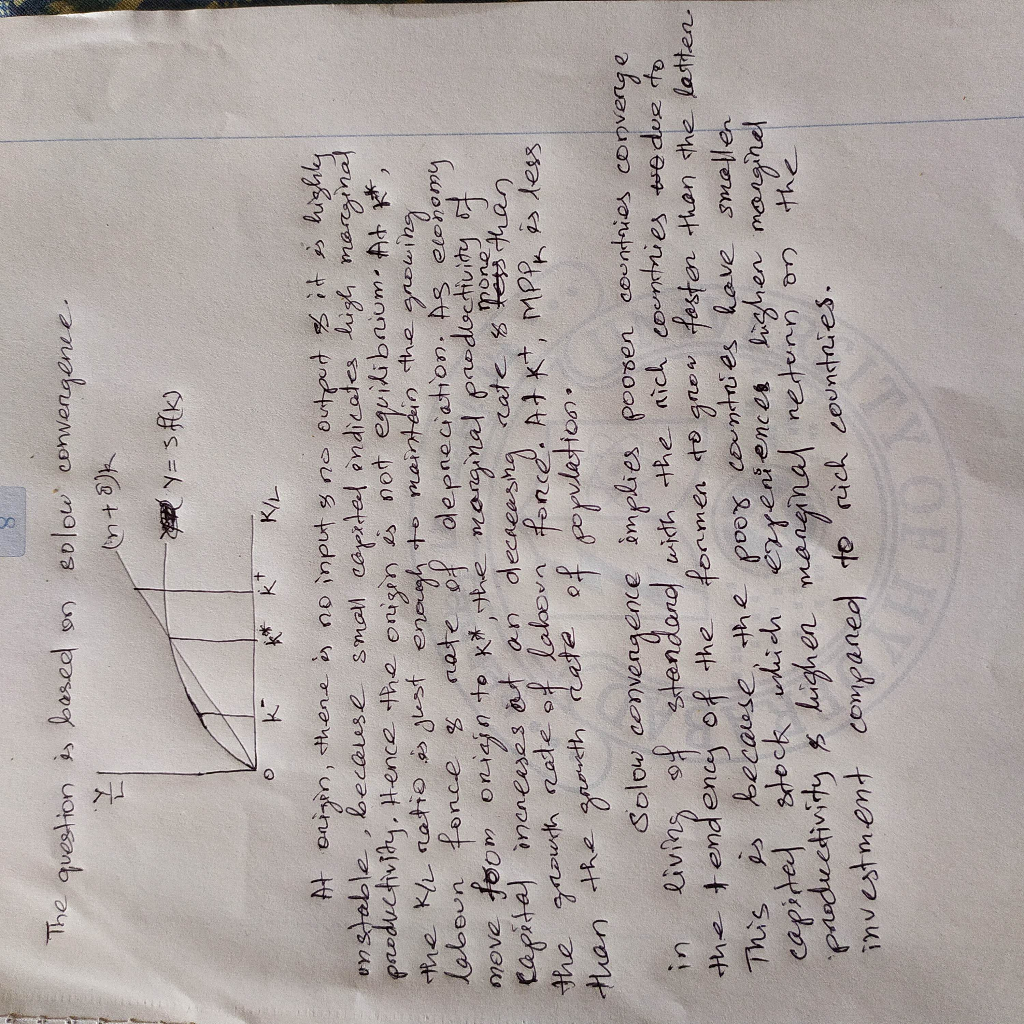 8
The question is based on solow convergence.
Y/L
(n+δ)k
Y = s f(k)
0
K⁻
K*
K⁺
K/L
At origin, there is no input & no output & it is highly
unstable, because small capital indicates high marginal
productivity. Hence the origin is not equilibrium. At K*,
the K/L ratio is just enough to maintain the growing
labour force & rate of depreciation. As economy
move from origin to K*, the marginal productivity of
capital increases at an decreasing rate & more than
the growth rate of labour force. At K⁺, MPPK is less
than the growth rate of population.
Solow convergence implies poorer countries converge
in living of standard with the rich countries due to
the tendency of the former to grow faster than the latter.
This is because the poor countries have smaller
capital stock which experiences higher marginal
productivity & higher marginal return on the
investment compared to rich countries.